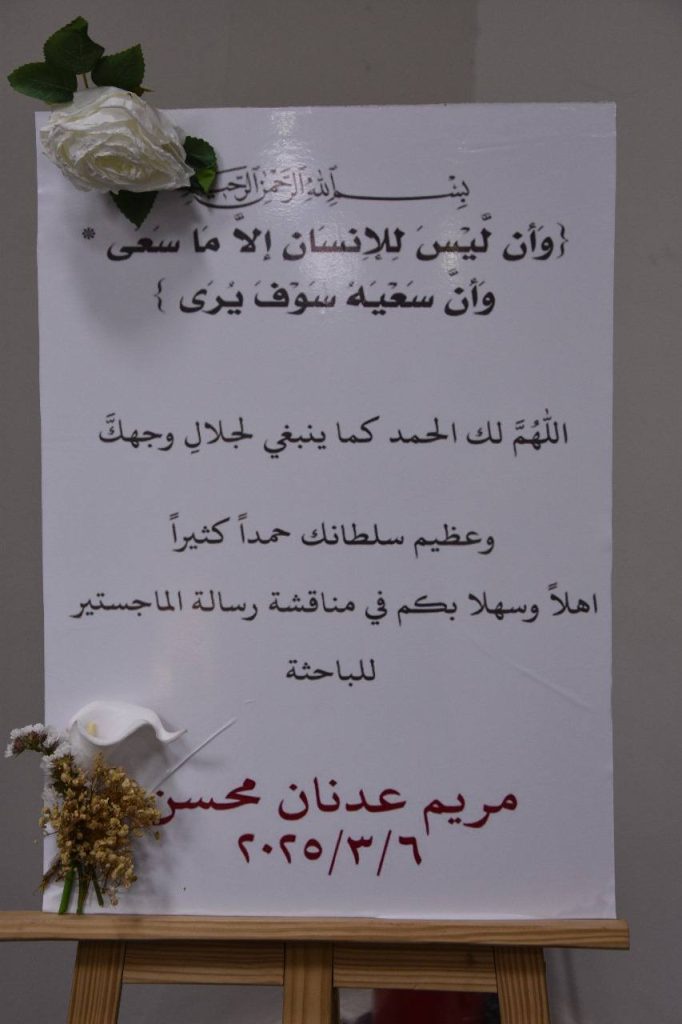 بِسْمِ اللهِ الرَّحْمٰنِ الرَّحِيمِ
{وَأَن لَّيْسَ لِلإِنسَانِ إِلاَّ مَا سَعَى *
وَأَنَّ سَعْيَهُ سَوْفَ يُرَى }
اللهُمَّ لك الحمد كما ينبغي لجلالِ وجهكَ
وعظيم سلطانك حمداً كثيراً
اهلاً وسهلا بكم في مناقشة رسالة الماجستير
للباحثة
مريم عدنان محسن
٢٠٢٥/٣/٦